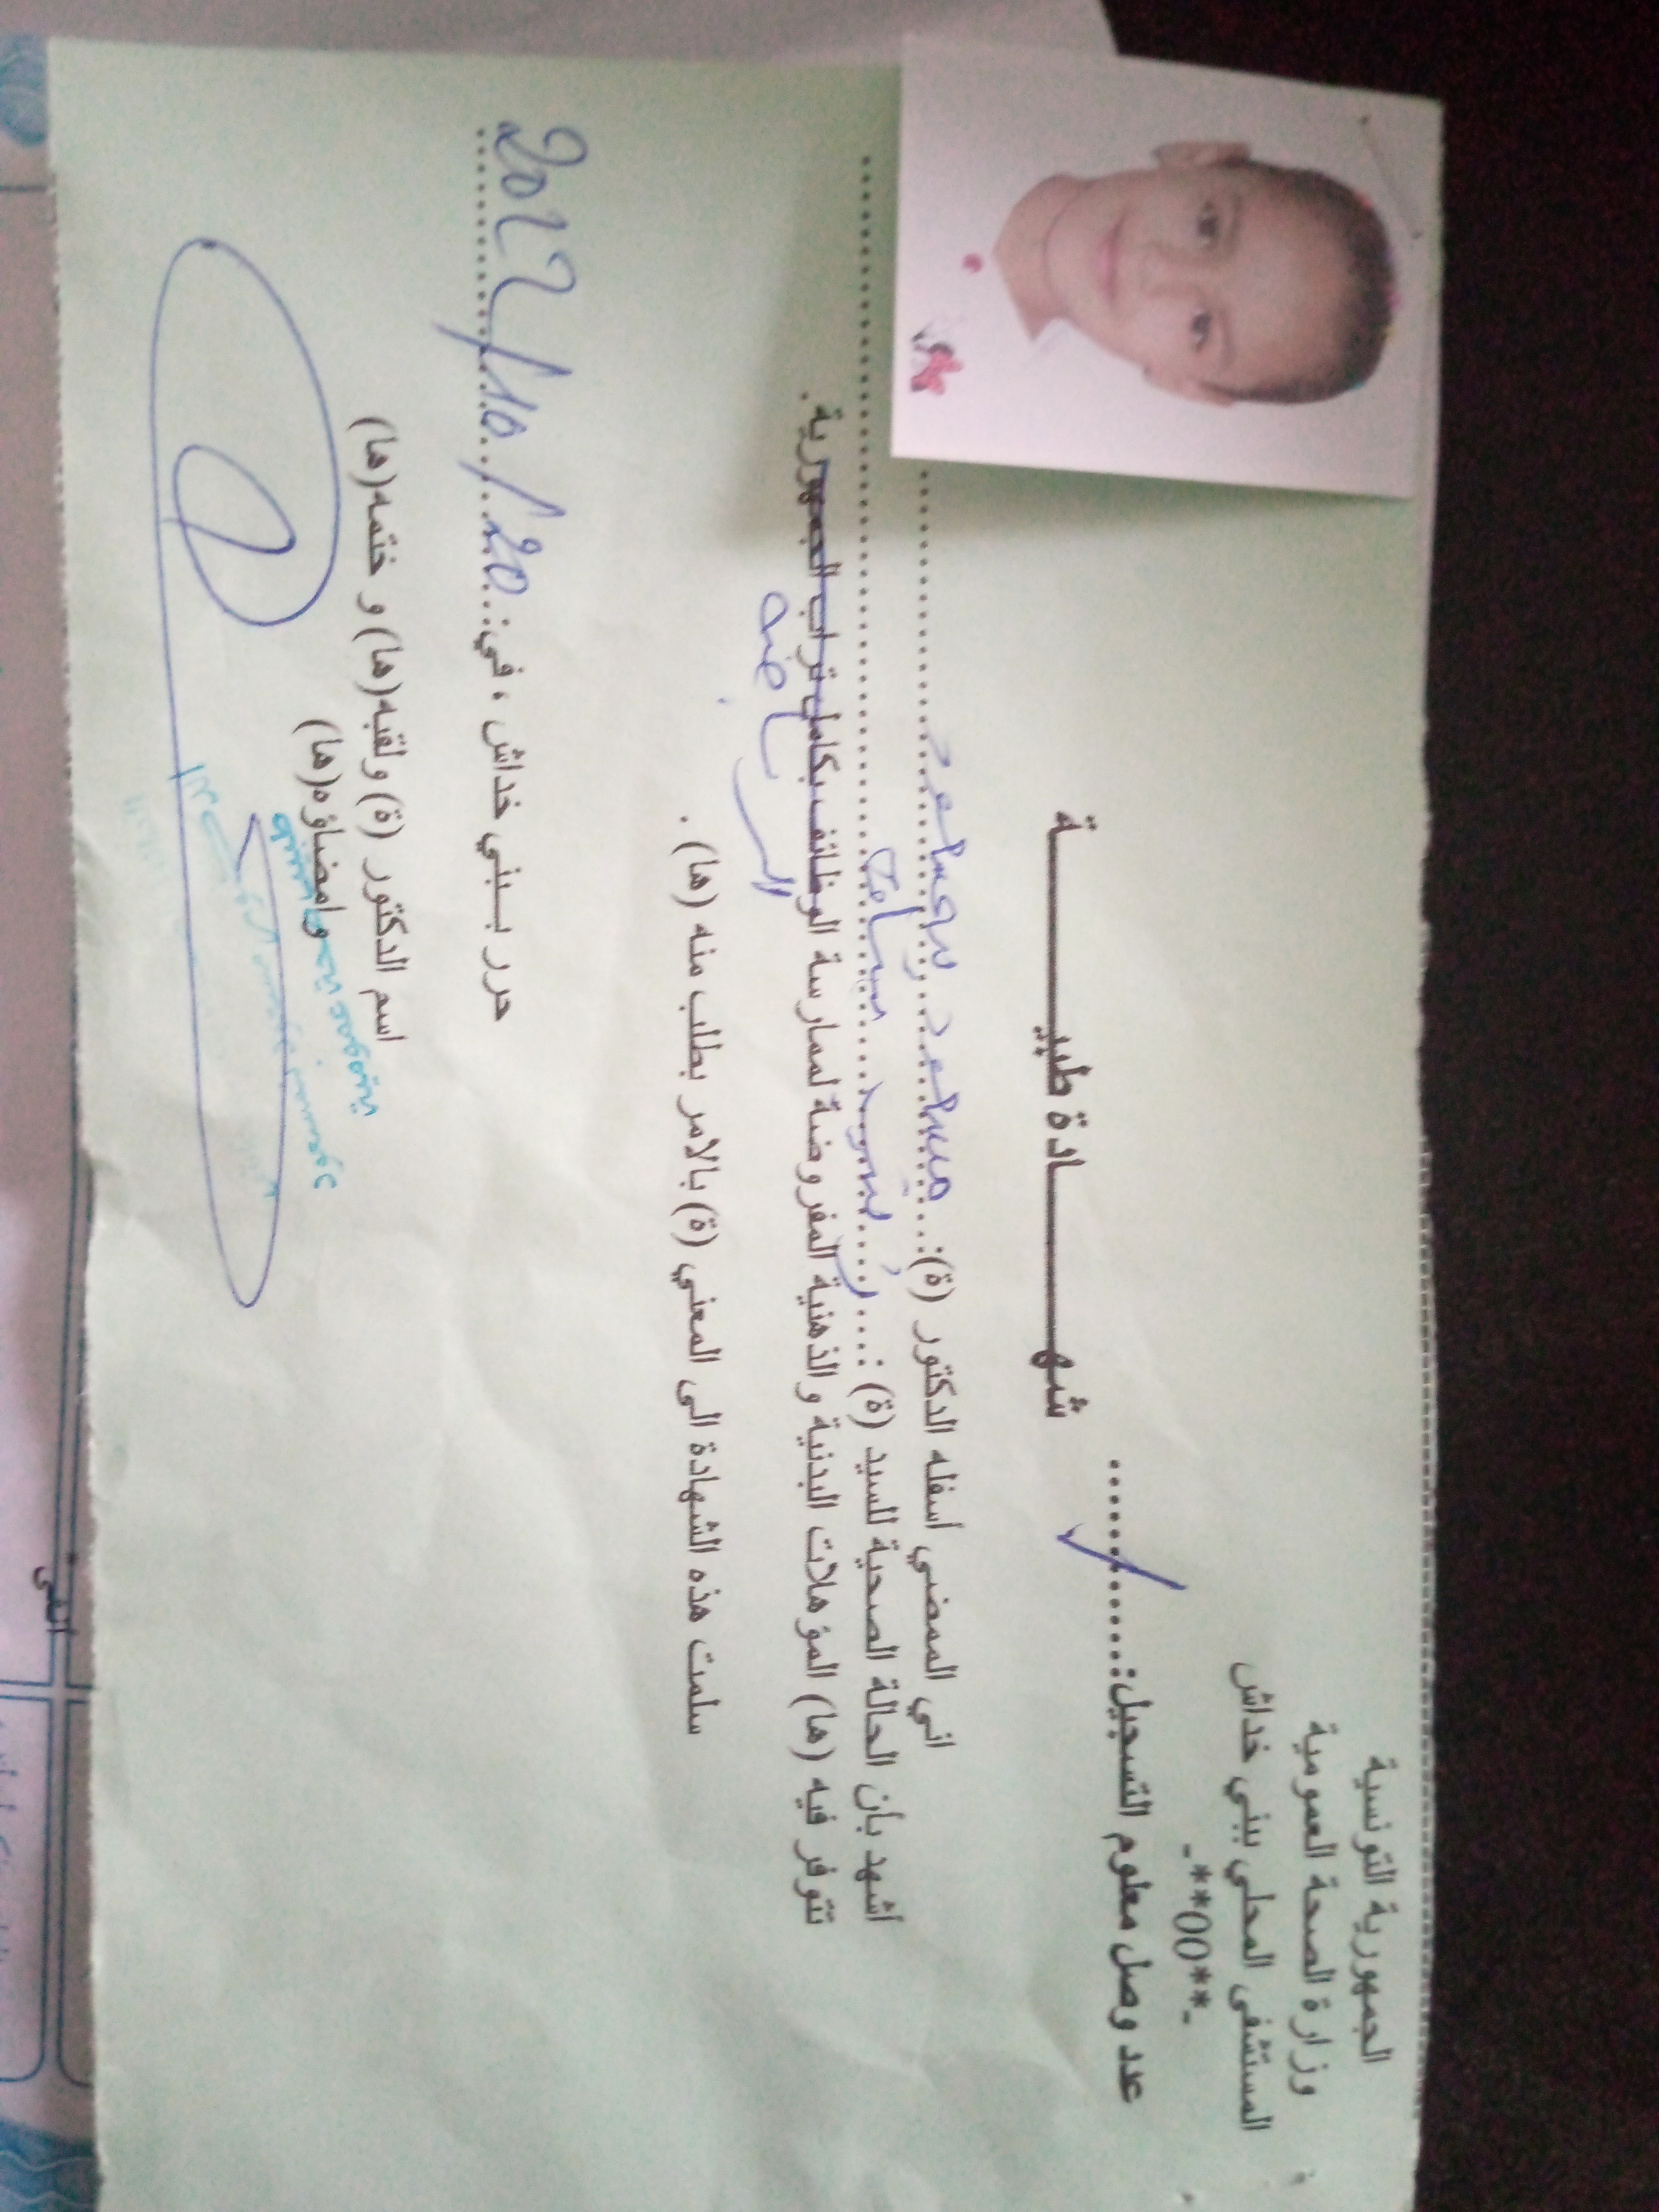 الجمهورية التونسية
وزارة الصحة العمومية
المستشفى المحلي ببني خداش
-**00**-
عدد وصل معلوم التسجيل:..............
شهـــــــادة طبيـــــــة
اني الممضي أسفله الدكتور (ة):..........
أشهد بأن الحالة الصحية للسيد (ة) :..........
تتوفر فيه (ها) المؤهلات البدنية والذهنية المفروضة لممارسة الوظائف بكامل تراب الجمهورية.
الرياضة
سلمت هذه الشهادة الى المعني (ة) بالامر بطلب منه (ها) .
حرر ببني خداش ، في: 20/10/2022
اسم الدكتور (ة) ولقبه(ها) و ختمه(ها)
وامضاؤه(ها)